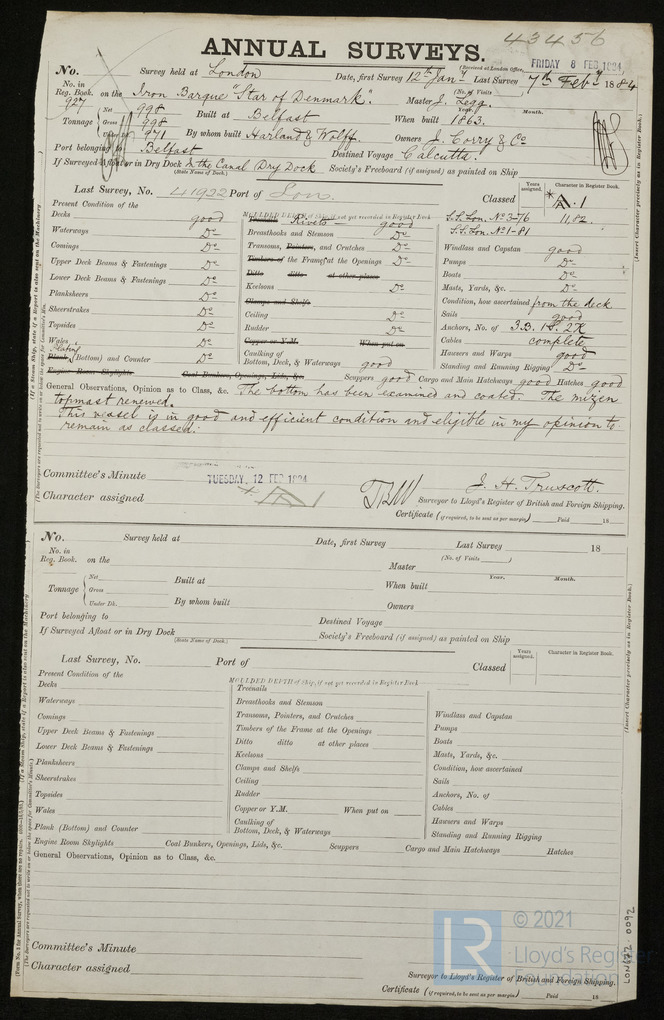 43456
ANNUAL SURVEYS.
(Received at London Office,
FRIDAY 8 FEB 1884
No. Survey held at London Date, first Survey 12th Jany Last Survey 7th Feby 1884
No. in Reg. Book. 927 on the Iron Barque "Star of Denmark". Master J. Legg. (No. of Visits
Tonnage Net 998 Gross 998 971 Built at Belfast When built Year. 1863. Month.
By whom built Harland & Wolff. Owners J. Corry & Co
Port belonging to Belfast Destined Voyage Calcutta.
If Surveyed Afloat or in Dry Dock & the Canal Dry Dock Society's Freeboard (if assigned) as painted on Ship
(State Name of Dock.)
Last Survey, No. 41922 Port of Lon. Classed Years assigned. Character in Register Book. A.1
Present Condition of the MOULDED DEPTH of ship, if not yet recorded in Register Book S.S. Lon. No 3-76 11,82.
Decks good Rivets good S.S. Lon. No 1-81
Waterways Do Breasthooks and Stemson Do
Comings Do Transoms, Pointers, and Crutches Do Windlass and Capstan good
Upper Deck Beams & Fastenings Do Timbers of the Frame at the Openings Do Pumps Do
Lower Deck Beams & Fastenings Do Ditto ditto at other places Boats Do
Keelsons Do Masts, Yards, &c. Do
Planksheers Do Clamps and Shelfs Condition, how ascertained from the deck
Sheerstrakes Do Ceiling Do Sails good
Topsides Do Rudder Do Anchors, No. of 3.B. 1S. 2K
Wales Do Copper or Y.M. When put on Cables complete
Plating Plank (Bottom) and Counter Do Caulking of Bottom, Deck, & Waterways good Hawsers and Warps good
Standing and Running Rigging Do
Engine Room Skylights Coal Bunkers, Openings, Lids, &c. Scuppers good Cargo and Main Hatchways good Hatches good
General Observations, Opinion as to Class, &c. The bottom has been examined and coated. The mizen
topmast renewed.
This vessel is in good and efficient condition and eligible in my opinion to
remain as classed.
Committee's Minute TUESDAY, 12 FEB 1884 J. H. Truscott.
Character assigned A1 Surveyor to Lloyd's Register of British and Foreign Shipping.
Certificate (if required, to be sent as per margin) Paid 18
No. Survey held at Date, first Survey Last Survey 18
No. in Reg. Book. on the Master (No. of Visits )
Tonnage Net Gross Under Dk. Built at When built Year. Month.
By whom built Owners
Port belonging to Destined Voyage
If Surveyed Afloat or in Dry Dock Society's Freeboard (if assigned) as painted on Ship
(State Name of Dock.)
Last Survey, No. Port of Classed Years assigned. Character in Register Book.
Present Condition of the MOULDED DEPTH of ship, if not yet recorded in Register Book
Decks Treenails
Waterways Breasthooks and Stemson
Comings Transoms, Pointers, and Crutches Windlass and Capstan
Upper Deck Beams & Fastenings Timbers of the Frame at the Openings Pumps
Lower Deck Beams & Fastenings Ditto ditto at other places Boats
Keelsons Masts, Yards, &c.
Planksheers Clamps and Shelfs Condition, how ascertained
Sheerstrakes Ceiling Sails
Topsides Rudder Anchors, No. of
Wales Copper or Y.M. When put on Cables
Plank (Bottom) and Counter Caulking of Bottom, Deck, & Waterways Hawsers and Warps
Standing and Running Rigging
Engine Room Skylights Coal Bunkers, Openings, Lids, &c. Scuppers Cargo and Main Hatchways Hatches
General Observations, Opinion as to Class, &c.
Committee's Minute
Character assigned
Surveyor to Lloyd's Register of British and Foreign Shipping.
Certificate (if required, to be sent as per margin) Paid 18
(Insert Character precisely as in Register Book.)
(Insert Character precisely as in Register Book.)
LR © 2021
Lloyd's Register
Foundation